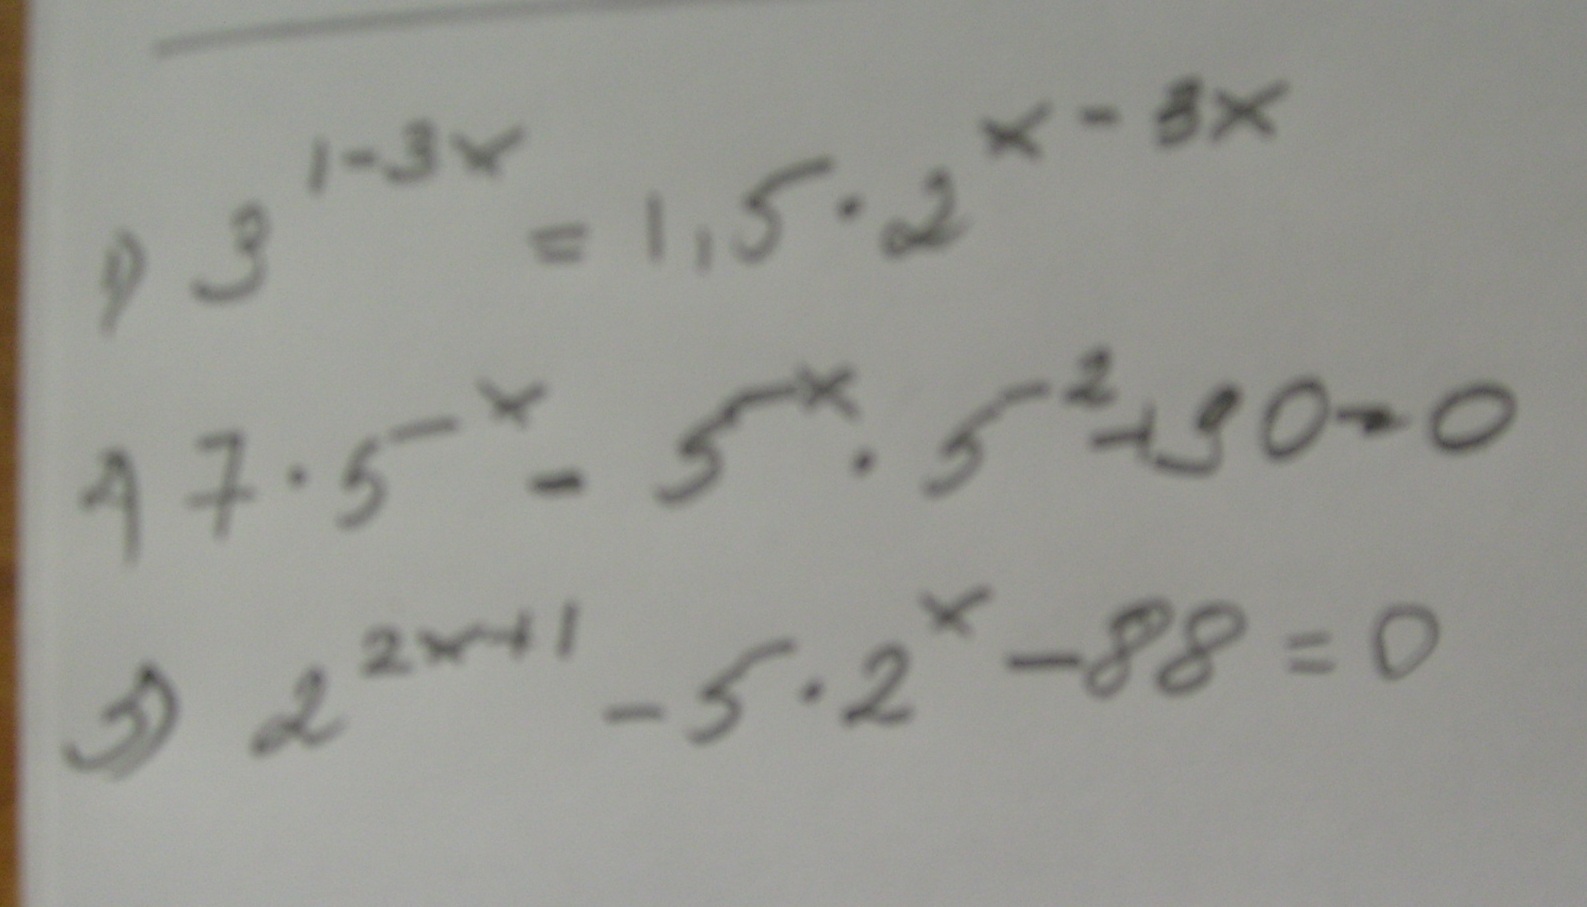 1) 3^{1-3x} = 1,5 · 2^{x-3x}
4) 7 · 5^x - 5^x · 5^2 + 90 = 0
5) 2^{2x+1} - 5 · 2^x - 88 = 0